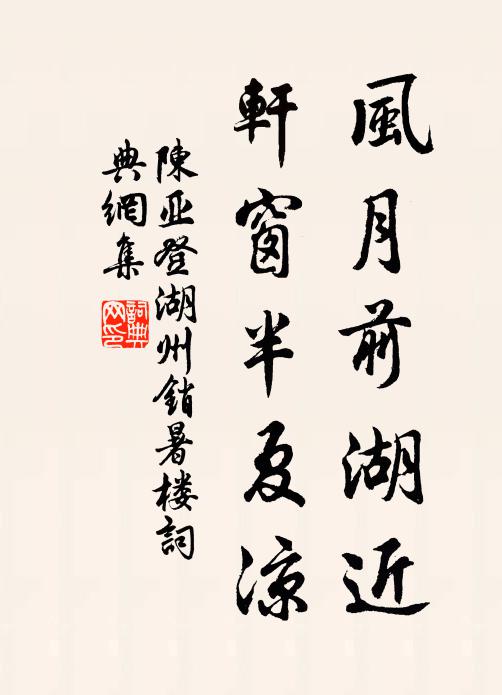 風月前湖近
軒窗半夏涼
陳亚登湖州銷暑楼詞
典網集
詞典
网印